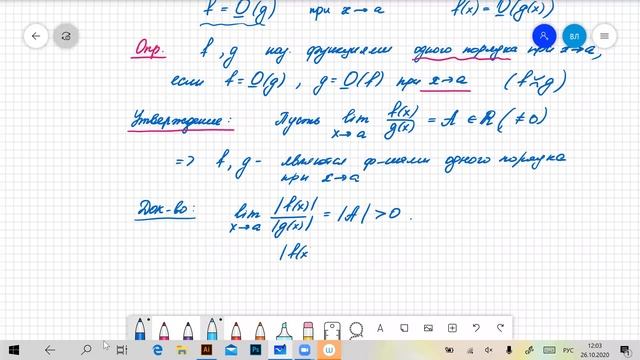 f = O(g) при x→a f(x) = O(g(x))
Опр. f, g наз. функциями одного порядка при x→a,
если f = O(g), g = O(f) при x→a (f ≍ g)
Утверждение: Пусть lim x→a f(x)/g(x) = A ∈ R (≠0)
=> f, g - являются ф-иями одного порядка
при x→a
Док-во: lim x→a |f(x)|/|g(x)| = |A| > 0.
|f(x
ВЛ
РУС
12:03
26.10.2020